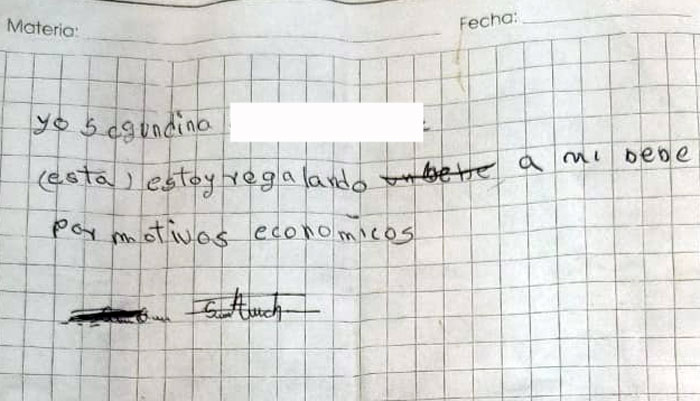 Materia:
Fecha:
yo segundina
(esta) estoy regalando un bebe a mi bebe
por motivos economicos